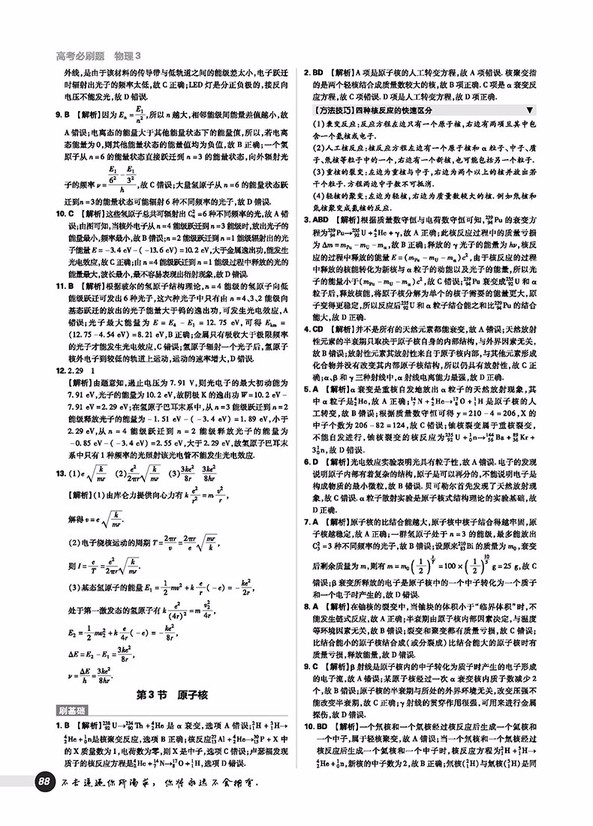 高考必刷题 物理3
外线,是由于该材料的传导带与低轨道之间的能级差太小,电子跃迁
时辐射出光子的频率太低,故C正确;LED灯是分正负极的,接反向
电压不能发光,故D错误.
9. B 【解析】因为Eₙ=E₁/n²,所以n越大,相邻能级间能量差值越小,故
A错误;电离态的能量大于其他能量状态下的能量值,所以,若电离
态能量为0,则其他能量状态的能量值均为负值,故B正确;一个氢
原子从n=6的能量状态直接跃迁到n=3的能量状态,向外辐射光
故C错误;大量氢原子从n=6的能量状态跃
迁到n=3的能量状态可能辐射6种不同频率的光子,故D错误.
10. C 【解析】这些氢原子总共可辐射出C₄²=6种不同频率的光,故A错
误;由图可知,当核外电子从n=4能级跃迁到n=3能级时,放出光子的
能量最小,频率最小,故B错误;n=2能级跃迁到n=1能级辐射出的光
子能量E=-3.4 eV-(-13.6 eV)=10.2 eV,大于金属逸出功,能发生
光电效应,故C正确;由n=4能级跃迁到n=1能级过程中释放的光的
能量最大,波长最小,最不容易表现出衍射现象,故D错误.
11. B 【解析】根据玻尔的氢原子结构理论,n=4能级的氢原子向低
能级跃迁可发出6种光子,这六种光子中只有由n=4、3、2能级向
基态跃迁的放出的光子能量大于钨的逸出功,可发生光电效应,A
错误;光子最大能量为E=E₄-E₁=12.75 eV,可得Eₖₘ=
(12.75-4.54 eV)=8.21 eV,B正确;金属只有吸收大于极限频率
的光子才能发生光电效应,C错误;氢原子辐射一个光子后,氢原子
核外电子到较低的轨道上运动,运动的速率增大,D错误.
12. 2.29 1
【解析】由题意知,遏止电压为7.91 V,则光电子的最大初动能为
7.91 eV,光子的能量为10.2 eV,故阴极K的逸出功W=10.2 eV-
7.91 eV=2.29 eV;在氢原子巴耳末系中,从n=3能级跃迁到n=2
能级释放光子的能量为-1.51 eV-(-3.4 eV)=1.89 eV,小于
2.29 eV,从n=4能级跃迁到n=2能级释放光子的能量为
-0.85 eV-(-3.4 eV)=2.55 eV,大于2.29 eV,故氢原子巴耳末
系中只有1种频率的光照射该光电管不能发生光电效应.
13. (1)e√(k/mr) (2)e²/(2πr)√(k/mr) (3)3ke²/8r 3ke²/8hr
【解析】(1)由库仑力提供向心力有k e²/r²=m v²/r,
解得v=e√(k/mr).
(2)电子绕核运动的周期T=2πr/v=2πr/e √(mr/k),
则I=e/T=e²/(2πr)√(k/mr).
(3)基态氢原子的能量E₁=½mv²+k e/r(-e)=-ke²/2r,
处于第一激发态的氢原子有k e²/(4r)²=m v₂²/4r,
E₂=½mv₂²+k e/4r(-e)=-ke²/8r,
ΔE=E₂-E₁=3ke²/8r,
ν=ΔE/h=3ke²/8hr.
第3节 原子核
刷基础
1. B 【解析】²³⁸₉₂U→²³⁴₉₀Th+⁴₂He是α衰变,选项A错误;²₁H+³₁H→
⁴₂He+¹₀n是核聚变反应,选项B正确;核反应²⁷₁₃Al+⁴₂He→³⁰₁₅P+X中
的X质量数为1,电荷数为零,则X是中子,选项C错误;卢瑟福发现
质子的核反应方程是⁴₂He+¹⁴₇N→¹⁷₈O+¹₁H,选项D错误.
2. BD 【解析】A项是原子核的人工转变方程,故A项错误.核聚变指
的是两个轻核结合成质量数较大的核,故B项正确.C项是α衰变反
应方程,故C项错误.D项是人工转变方程,故D项正确.
【方法技巧】四种核反应的快速区分
(1)衰变反应:反应方程左边只有一个原子核,右边有两项且其中包
含一个氦核或电子.
(2)人工核反应:核反应方程左边有一个原子核和α粒子、中子、质
子、氘核等粒子中的一个,右边有一个新核,也可能包括另一个粒子.
(3)重核的裂变:左边为重核与中子,右边为两个以上的核并放出若
干个粒子.方程两边中子数不可抵消.
(4)轻核的聚变:左边为轻核,右边为质量数较大的核.例如氘核和
氚核聚变成氦核的反应.
3. ABD 【解析】根据质量数守恒与电荷数守恒可知,²³⁹₉₄Pu的衰变方
程为²³⁹₉₄Pu→²³⁵₉₂U+⁴₂He+γ,故A正确;此核反应过程中的质量亏损
为Δm=m_Pu-m_U-m_α,故B正确;释放的γ光子的能量为hν,核反
应的过程中释放的能量E=(m_Pu-m_U-m_α)c²,由于核反应的过程
中释放的核能转化为新核与α粒子的动能以及光子的能量,所以光
子的能量小于(m_Pu-m_U-m_α)c²,故C错误;²³⁹₉₄Pu衰变成²³⁵₉₂U和α
粒子后,释放核能,将原子核分解为单个的核子需要的能量更大,原
子变得更稳定,所以反应后²³⁵₉₂U和α粒子结合能之和比²³⁹₉₄Pu的结合
能大,故D正确.
4. CD 【解析】并不是所有的天然元素都能衰变,故A错误;天然放射
性元素的半衰期只取决于原子核自身的内部结构,与外界因素无关,
故B错误;放射性元素其放射性来自于原子核内部,与其他元素形成
化合物并没有改变其内部原子核结构,所以仍具有放射性,故C正
确;α、β和γ三种射线中,α射线电离能力最强,故D正确.
5. A 【解析】α衰变是重核自发地放出α粒子的天然放射现象,其
中α粒子是⁴₂He,故A正确;¹⁴₇N+⁴₂He→¹⁷₈O+¹₁H是原子核的人
工转变,故B错误;根据质量数守恒可得y=210-4=206,X的
中子个数为206-82=124,故C错误;铀核裂变属于重核裂变,
不能自发进行,铀核裂变的核反应为²³⁵₉₂U+¹₀n→¹⁴⁴₅₆Ba+⁸⁹₃₆Kr+
3¹₀n,故D错误.
6. D 【解析】光电效应实验表明光具有粒子性,故A错误.电子的发现
说明原子内部有着复杂的结构,原子是可以再分的,不能说明电子是
构成物质的最小微粒,故B错误.贝可勒尔首先发现了天然放射现
象,故C错误.α粒子散射实验是原子核式结构理论的实验基础,故
D正确.
7. A 【解析】原子核的比结合能越大,原子核中核子结合得越牢固,原
子核越稳定,故A正确;一群氢原子处于n=3的能级,最多能放出
C₃²=3种不同频率的光子,故B错误;设原来²¹⁰₈₃Bi的质量为m₀,衰变
故C
错误;β衰变所释放的电子是原子核中的一个中子转化为一个质子
和一个电子时产生的,故D错误.
8. A 【解析】在铀核的裂变中,当铀块的体积小于“临界体积”时,不
能发生链式反应,故A正确;半衰期由原子核内部因素决定,与温度
等环境因素无关,故B错误;裂变和聚变都有质量亏损,故C错误;
比结合能小的原子核结合成(或分裂成)比结合能大的原子核时有
质量亏损,释放能量,故D错误.
9. C 【解析】β射线是原子核内的中子转化为质子时产生的电子形成
的电子流,故A错误;某原子核经过一次α衰变核内质子数减少2
个,故B错误;原子核的半衰期与所处的外界环境无关,改变压强不
能改变半衰期,故C正确;γ射线的贯穿作用很强,可用来进行金属
探伤,故D错误.
10. BD 【解析】一个氘核和一个氚核经过核反应后生成一个氦核和
一个中子,属于轻核聚变,故A错误;当一个氘核和一个氚核经过
核反应后生成一个氦核和一个中子时,核反应方程为²₁H+³₁H→
⁴₂He+¹₀n,新核的中子数为2,故B正确;氘核(²₁H)与氚核(³₁H)是同
88